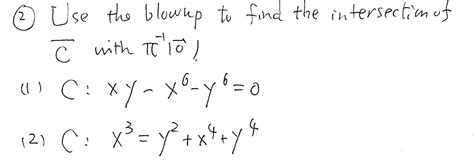 ② Use the blowup to find the intersection of
C̅ with π⁻¹(0⃗)!
(1) C: xy - x⁶ - y⁶ = 0
(2) C: x³ = y² + x⁴ + y⁴